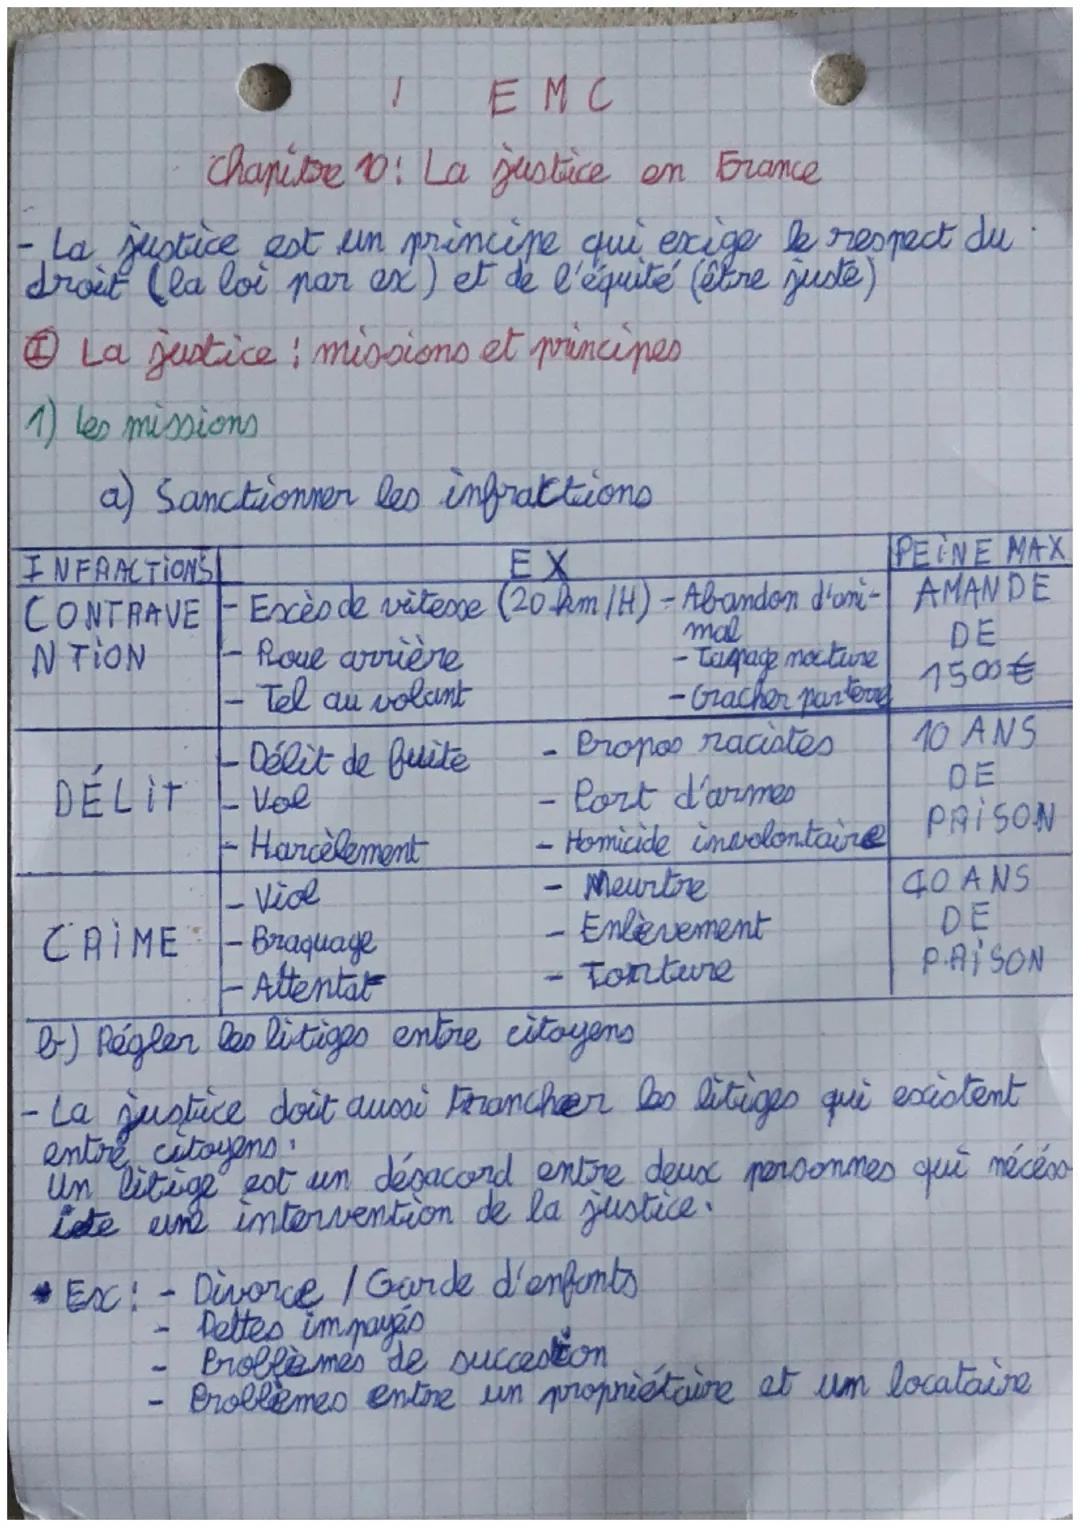 1 EMC
Chapitre 10 : La justice en France
- La justice est un principe qui exige le respect du
droit (la loi par ex) et de l'équité (être juste)
I La justice : missions et principes
1) les missions
a) Sanctionner les infractions
INFRACTIONS EX PEINE MAX
CONTRAVE - Excès de vitesse (20 km/H) - Abandon d'ani- AMANDE
mal DE
NTION - Roue arrière - Tapage nocture 1500€
- Tel au volant - Cracher par terre
- Délit de fuite - Propos racistes 10 ANS
DÉLIT - Vol - Port d'armes DE
- Harcèlement - Homicide involontaire PRISON
- Viol - Meurtre 40 ANS
CRIME - Braquage - Enlèvement DE
- Attentat - Torture PRISON
b) Régler les litiges entre citoyens
- La justice doit aussi trancher les litiges qui existent
entre citoyens.
Un litige est un désacord entre deux personnes qui nécéss
iste une intervention de la justice.
* Ex : - Divorce / Garde d'enfants
- Dettes impayés
- Problèmes de succession
- Problèmes entre un propriétaire et um locataire